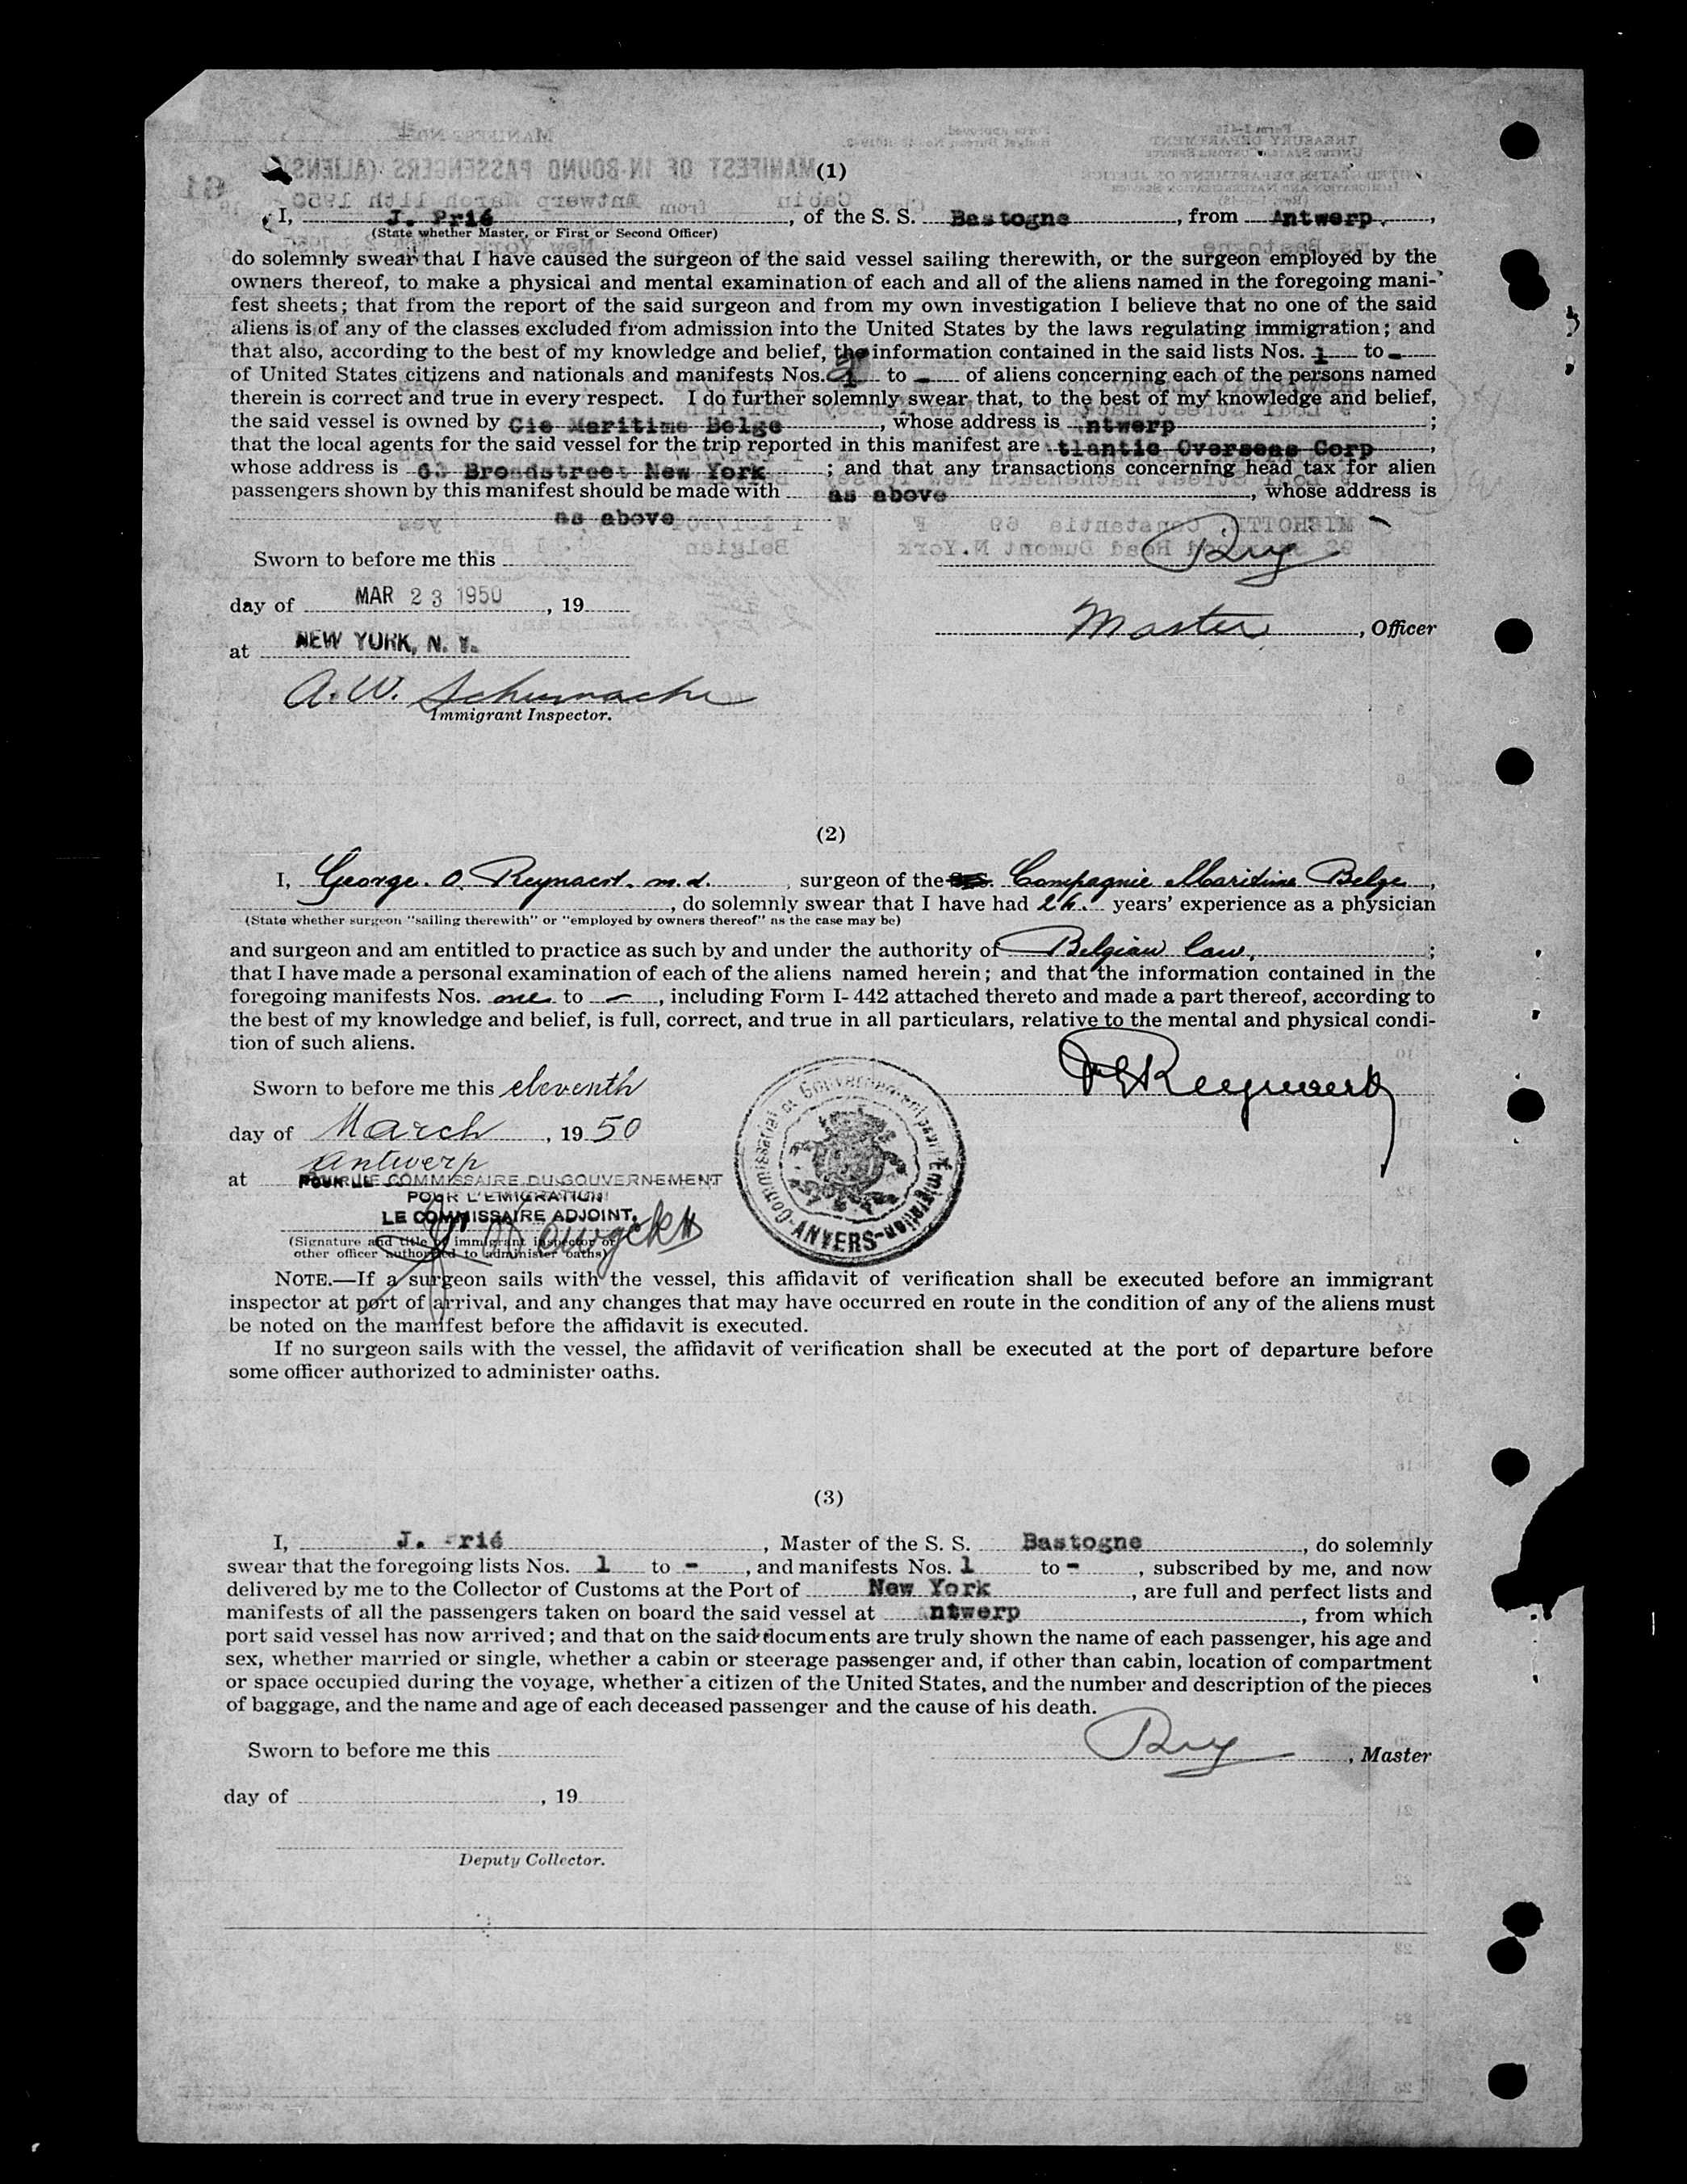 (1)
I, J. Prié, of the S. S. Bastogne, from Antwerp,
(State whether Master, or First or Second Officer)
do solemnly swear that I have caused the surgeon of the said vessel sailing therewith, or the surgeon employed by the
owners thereof, to make a physical and mental examination of each and all of the aliens named in the foregoing mani-
fest sheets; that from the report of the said surgeon and from my own investigation I believe that no one of the said
aliens is of any of the classes excluded from admission into the United States by the laws regulating immigration; and
that also, according to the best of my knowledge and belief, the information contained in the said lists Nos. 1 to -
of United States citizens and nationals and manifests Nos. 1 to - of aliens concerning each of the persons named
therein is correct and true in every respect. I do further solemnly swear that, to the best of my knowledge and belief,
the said vessel is owned by Cie Maritime Belge, whose address is Antwerp;
that the local agents for the said vessel for the trip reported in this manifest are Atlantic Overseas Corp,
whose address is Broadstreet New York; and that any transactions concerning head tax for alien
passengers shown by this manifest should be made with as above, whose address is
as above
Sworn to before me this
day of MAR 23 1950, 19
Master, Officer
at NEW YORK, N. Y.
A. W. Schumacher
Immigrant Inspector.
(2)
I, George. O. Reynaert. m.d., surgeon of the S. S. Compagnie Maritime Belge,
, do solemnly swear that I have had 26. years' experience as a physician
(State whether surgeon "sailing therewith" or "employed by owners thereof" as the case may be)
and surgeon and am entitled to practice as such by and under the authority of Belgian law,;
that I have made a personal examination of each of the aliens named herein; and that the information contained in the
foregoing manifests Nos. one to -, including Form I-442 attached thereto and made a part thereof, according to
the best of my knowledge and belief, is full, correct, and true in all particulars, relative to the mental and physical condi-
tion of such aliens.
Reynaert
Sworn to before me this eleventh
day of March, 19 50
at Antwerp
POUR LE COMMISSAIRE DU GOUVERNEMENT
POUR L'EMIGRATION
LE COMMISSAIRE ADJOINT,
(Signature and title of immigrant inspector or
other officer authorized to administer oaths)
Commissariat du Gouvernement pour l'Emigration - ANVERS -
NOTE.—If a surgeon sails with the vessel, this affidavit of verification shall be executed before an immigrant
inspector at port of arrival, and any changes that may have occurred en route in the condition of any of the aliens must
be noted on the manifest before the affidavit is executed.
If no surgeon sails with the vessel, the affidavit of verification shall be executed at the port of departure before
some officer authorized to administer oaths.
(3)
I, J. Prié, Master of the S. S. Bastogne, do solemnly
swear that the foregoing lists Nos. 1 to -, and manifests Nos. 1 to -, subscribed by me, and now
delivered by me to the Collector of Customs at the Port of New York, are full and perfect lists and
manifests of all the passengers taken on board the said vessel at Antwerp, from which
port said vessel has now arrived; and that on the said documents are truly shown the name of each passenger, his age and
sex, whether married or single, whether a cabin or steerage passenger and, if other than cabin, location of compartment
or space occupied during the voyage, whether a citizen of the United States, and the number and description of the pieces
of baggage, and the name and age of each deceased passenger and the cause of his death.
Sworn to before me this
, Master
day of , 19
Deputy Collector.